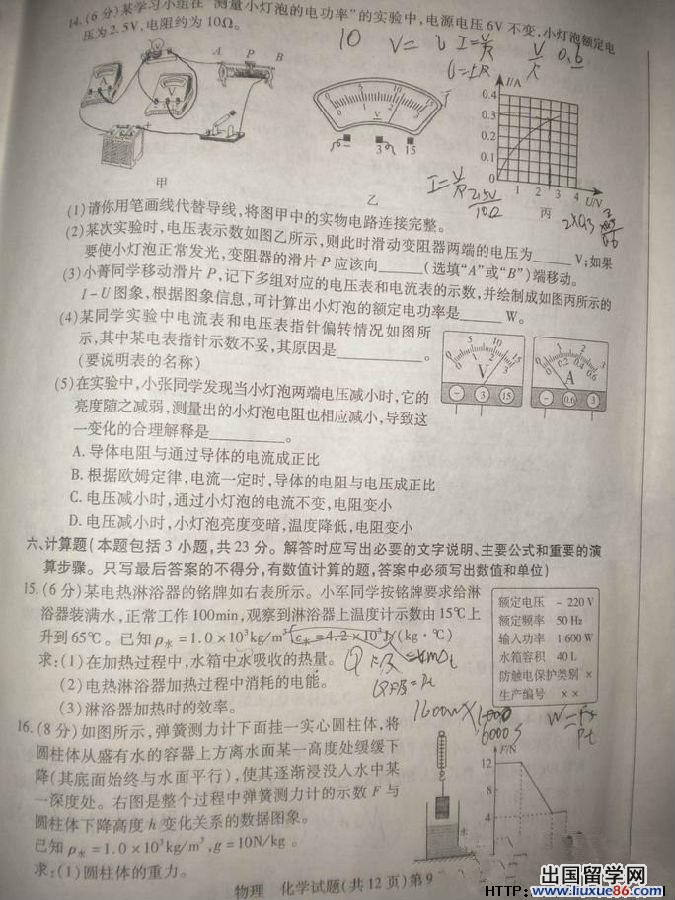 14.(6分)某学习小组在"测量小灯泡的电功率"的实验中,电源电压6V不变,小灯泡额定电
压为2.5V,电阻约为10Ω。
10
A P B
A
V
甲
0 5 10 15
V
3 15
乙
I/A
0.4
0.3
0.2
0.1
0
1 2 3 4 U/V
丙
(1)请你用笔画线代替导线,将图甲中的实物电路连接完整。
(2)某次实验时,电压表示数如图乙所示,则此时滑动变阻器两端的电压为______V;如果
要使小灯泡正常发光,变阻器的滑片P应该向______(选填"A"或"B")端移动。
(3)小菁同学移动滑片P,记下多组对应的电压表和电流表的示数,并绘制成如图丙所示的
I-U图象,根据图象信息,可计算出小灯泡的额定电功率是______W。
(4)某同学实验中电流表和电压表指针偏转情况如图所
示,其中某电表指针示数不妥,其原因是__________。
(要说明表的名称)
0 5 10 15
0 1 2 3
V
- 3 15
0 1 2 3
0 0.2 0.4 0.6
A
- 0.6 3
(5)在实验中,小张同学发现当小灯泡两端电压减小时,它的
亮度随之减弱,测量出的小灯泡电阻也相应减小,导致这
一变化的合理解释是__________。
A.导体电阻与通过导体的电流成正比
B.根据欧姆定律,电流一定时,导体的电阻与电压成正比
C.电压减小时,通过小灯泡的电流不变,电阻变小
D.电压减小时,小灯泡亮度变暗,温度降低,电阻变小
六、计算题(本题包括3小题,共23分。解答时应写出必要的文字说明、主要公式和重要的演
算步骤。只写最后答案的不得分,有数值计算的题,答案中必须写出数值和单位)
15.(6分)某电热淋浴器的铭牌如右表所示。小军同学按铭牌要求给淋
浴器装满水,正常工作100min,观察到淋浴器上温度计示数由15℃上
升到65℃。已知ρ水=1.0×10³kg/m³[c水=4.2×10³J/(kg·℃)
求:(1)在加热过程中,水箱中水吸收的热量。
(2)电热淋浴器加热过程中消耗的电能。
(3)淋浴器加热时的效率。
额定电压 ~220V
额定频率 50Hz
输入功率 1600W
水箱容积 40L
防触电保护类别 ×
生产编号 ××
16.(8分)如图所示,弹簧测力计下面挂一实心圆柱体,将
圆柱体从盛有水的容器上方离水面某一高度处缓缓下
降(其底面始终与水面平行),使其逐渐浸没入水中某
一深度处。右图是整个过程中弹簧测力计的示数F与
圆柱体下降高度h变化关系的数据图象。
已知ρ水=1.0×10³kg/m³,g=10N/kg。
求:(1)圆柱体的重力。
水
F/N
12
8
4
物理 化学试题(共12页)第9
出国留学网
HTTP:
www.liuxue86.com